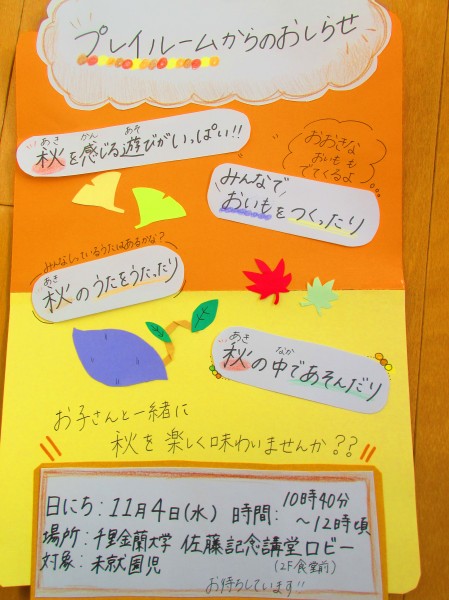 プレイルームからのおしらせ
秋を感じる遊びがいっぱい!!
あき かん あそ
おおきな
おいもも
でてくるよ
みんなで
おいもをつくったり
みんなしっているうたはあるかな?
あき
秋のうたをうたったり
あき なか
秋の中であそんだり
お子さんと一緒に
秋を楽しく味わいませんか??
日にち:11月4日(水) 時間:10時40分
~12時頃
場所:千里金蘭大学 佐藤記念講堂ロビー
(2F食堂前)
対象:未就園児
お待ちしています!!